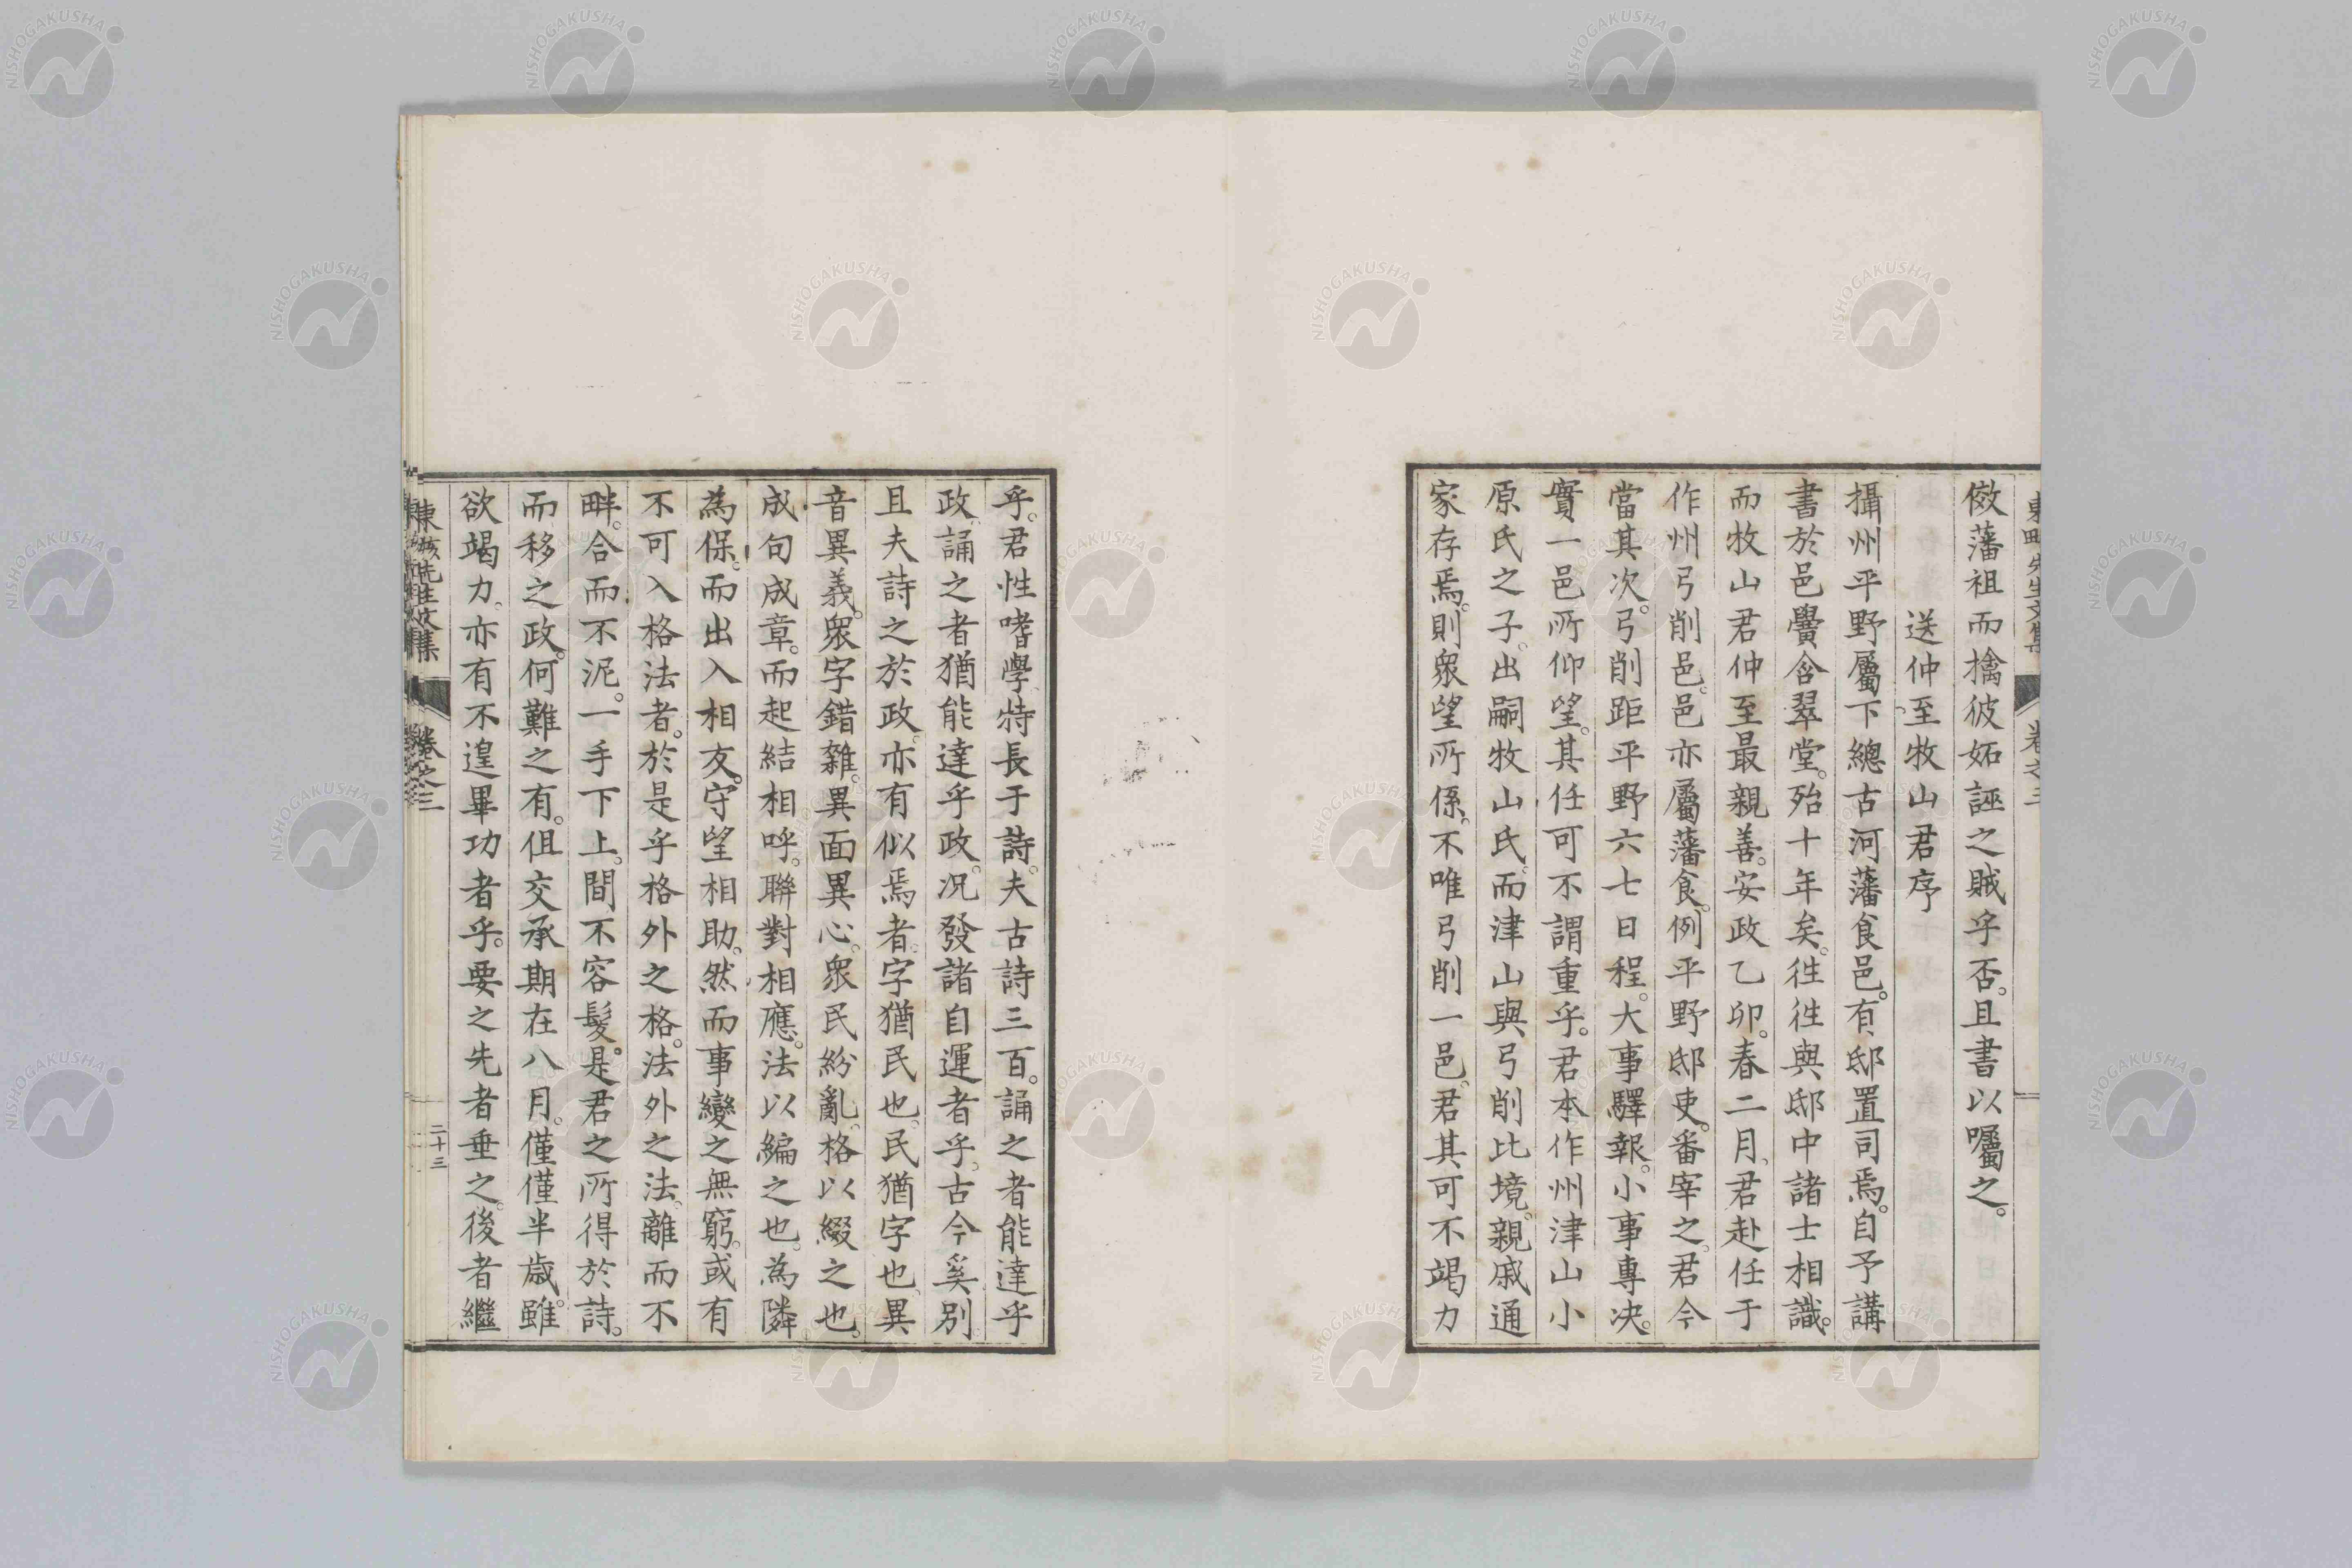 儌藩祖而擒彼妬誣之賊乎否。且書以囑之。
送仲至牧山君序
攝州平野屬下總古河藩食邑。有邸置司焉。自予講
書於邑黌含翠堂。殆十年矣。徃徃與邸中諸士相識。
而牧山君仲至最親善。安政乙卯。春二月、君赴任于
作州弓削邑。邑亦屬藩食。例平野邸吏。番宰之。君今
當其次。弓削距平野六七日程。大事驛報。小事專决。
實一邑所仰望。其任可不謂重乎。君本作州津山小
原氏之子。出嗣牧山氏。而津山與弓削比境。親戚通
家存焉。則衆望所係。不唯弓削一邑。君其可不竭力
乎。君性嗜學、特長于詩。夫古詩三百。誦之者能達乎
政、誦之者猶能達乎政。况發諸自運者乎。古今奚別。
且夫詩之於政。亦有似焉者。字猶民也。民猶字也、異
音異義。衆字錯雜。異面異心。衆民紛亂。格以綴之也。
成句成章。而起結相呼。聯對相應。法以編之也。為隣
為保。而出入相友。守望相助。然而事變之無窮。或有
不可入格法者。於是乎格外之格。法外之法。離而不
畔。合而不泥。一手下上。間不容髮。是君之所得於詩。
而移之政。何難之有。但交承期在八月。僅僅半歳。雖
欲竭力。亦有不遑畢功者乎。要之先者垂之。後者繼
東畡先生文集
卷之三
二十三